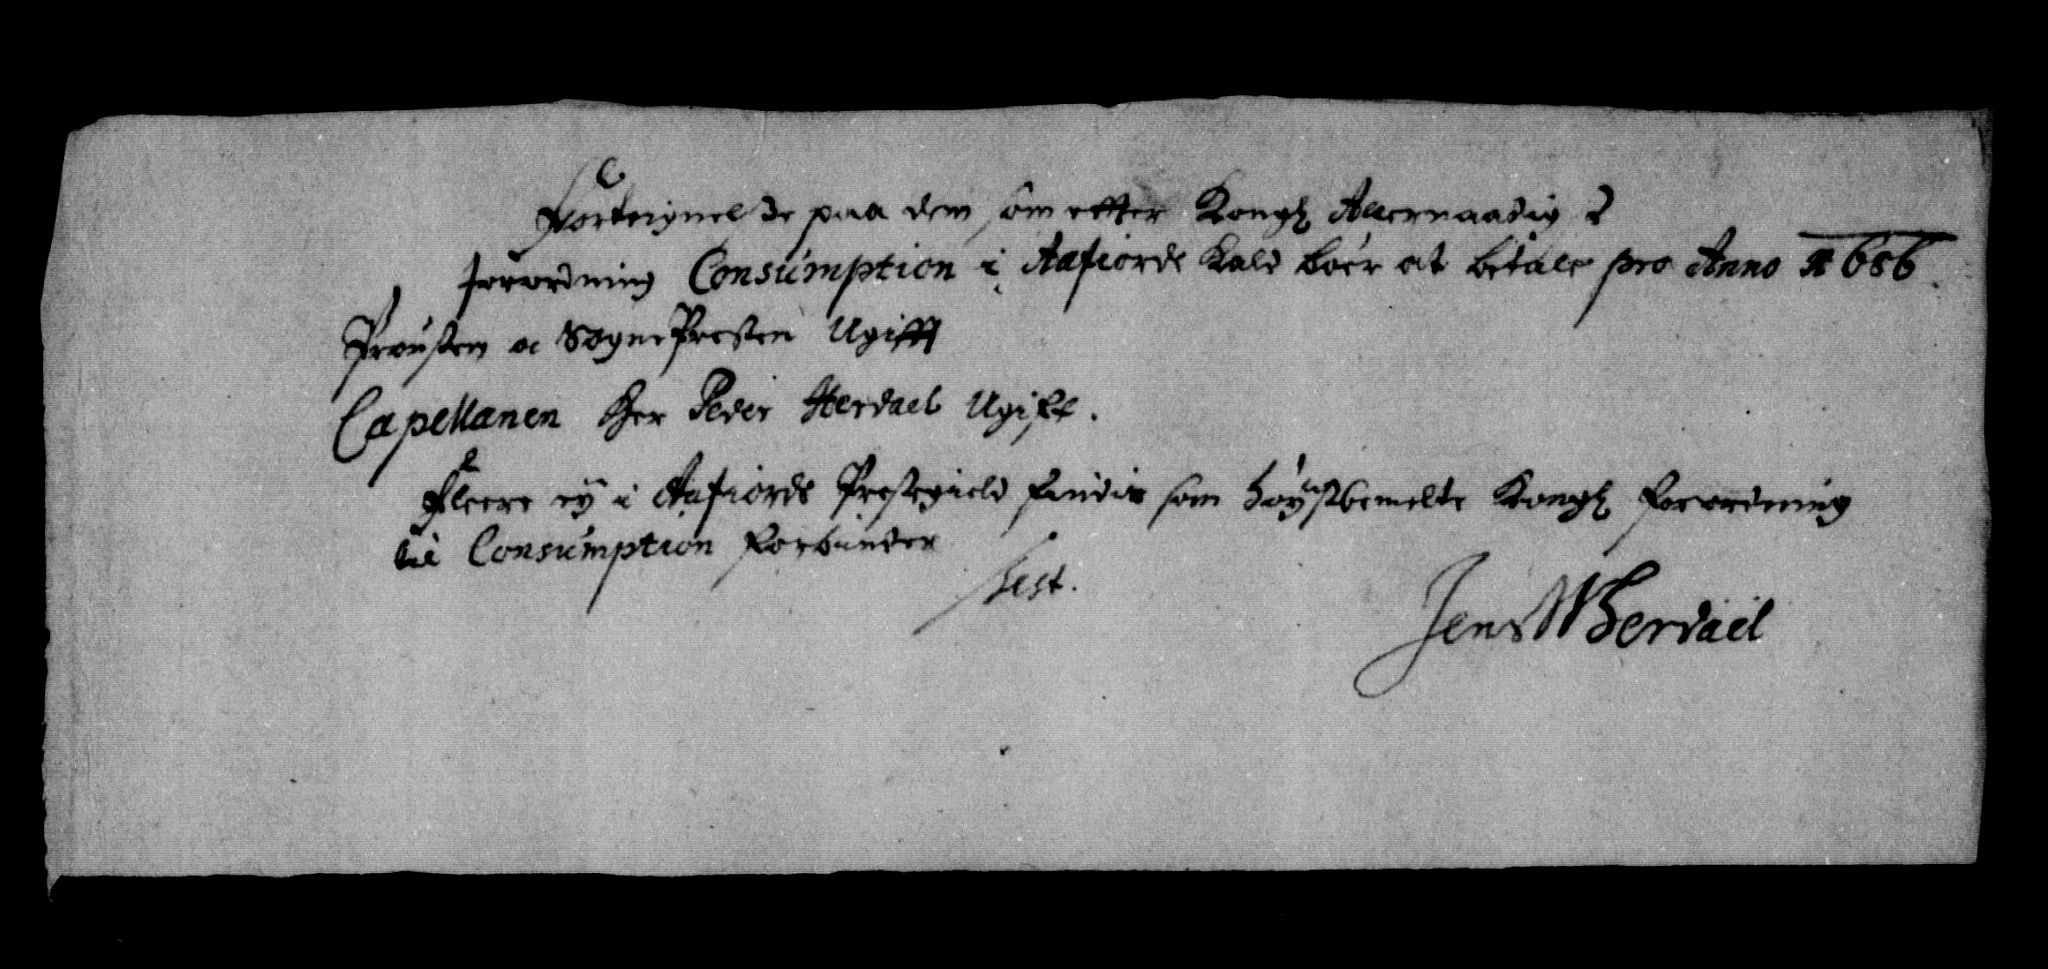 Forteignelse paa dem som effter Kongl Allernaadigst
forordning Consumption i Aafiords Kald bör at betale pro Anno 1686.
Prousten oc SognePresten Ugifft
Capellanen Her Peder Herdael Ugift.
Fleere ey i Aafiords Prestegield findis som höystbemelte Kongl forordning
til Consumption forbinder
Test.
Jens Herdael